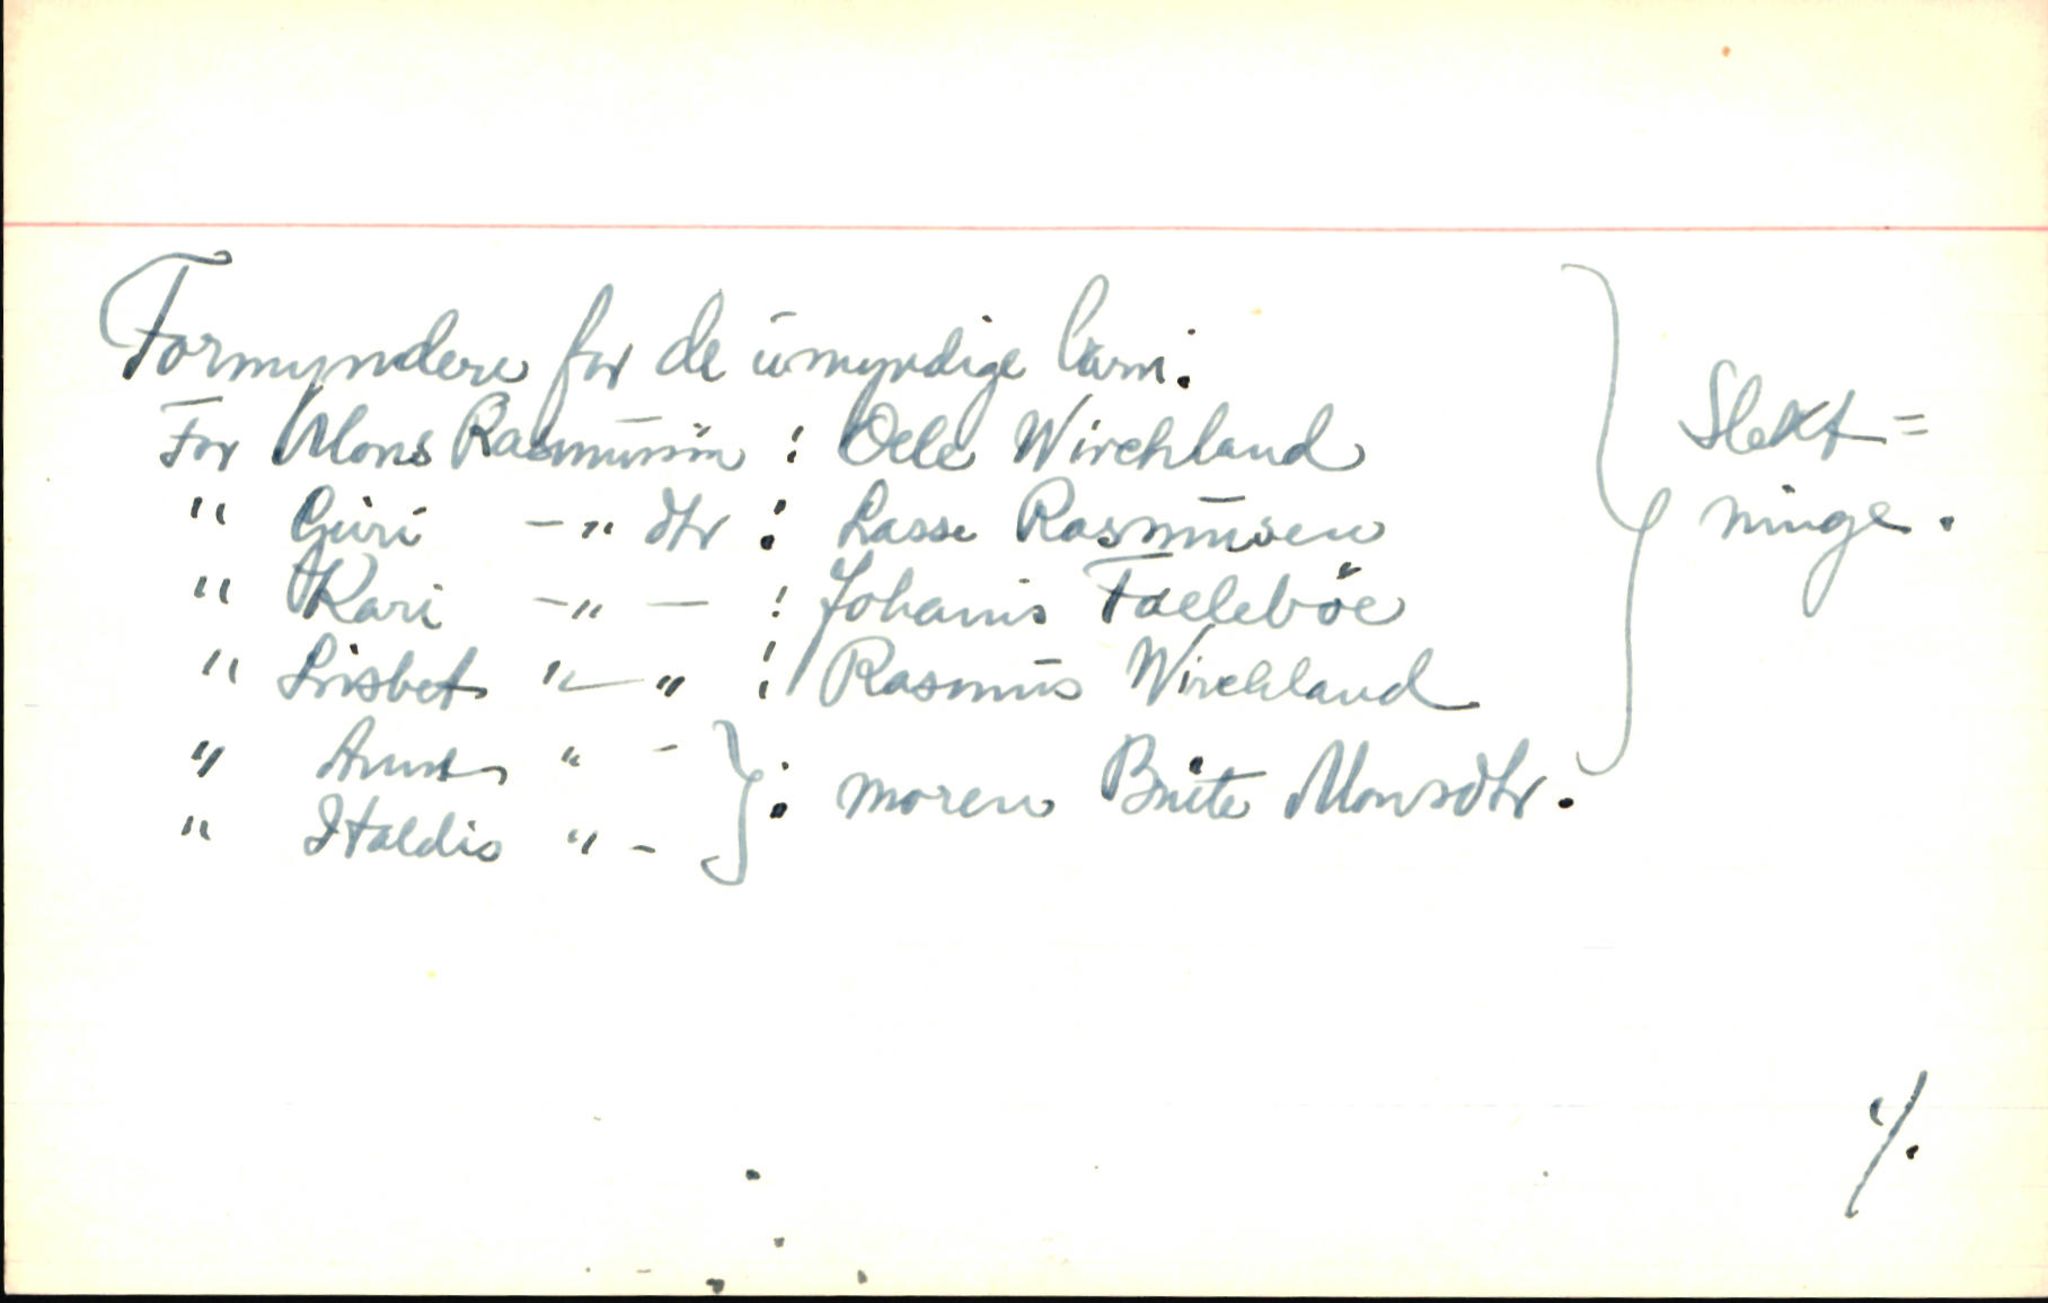 Formyndere for de umyndige barn:
For Mons Rasmussen : Oele Wirchland
" Guri -"- dtr : Lasse Rasmusen
" Kari -"- : Johanis Faeleböe
" Lisbet "-" : Rasmus Wirchland
" Anna " -
" Haldis " - } : moren Brite Monsdtr.
Slekt=
ninge.
./.